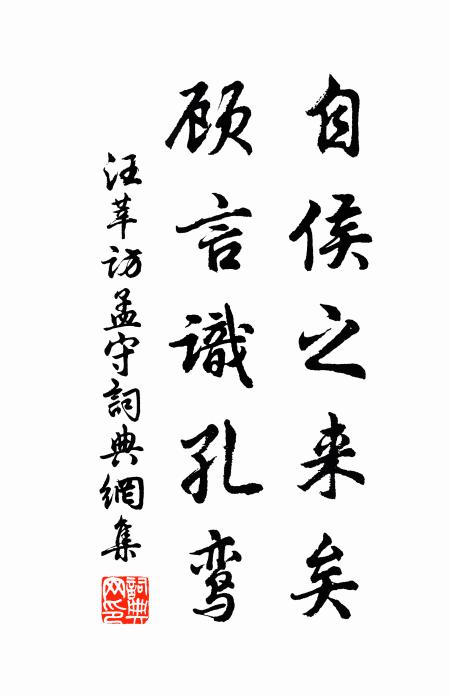 自侯之来矣
顾言識孔鸾
汪莘访孟守詞典網集
詞典網印